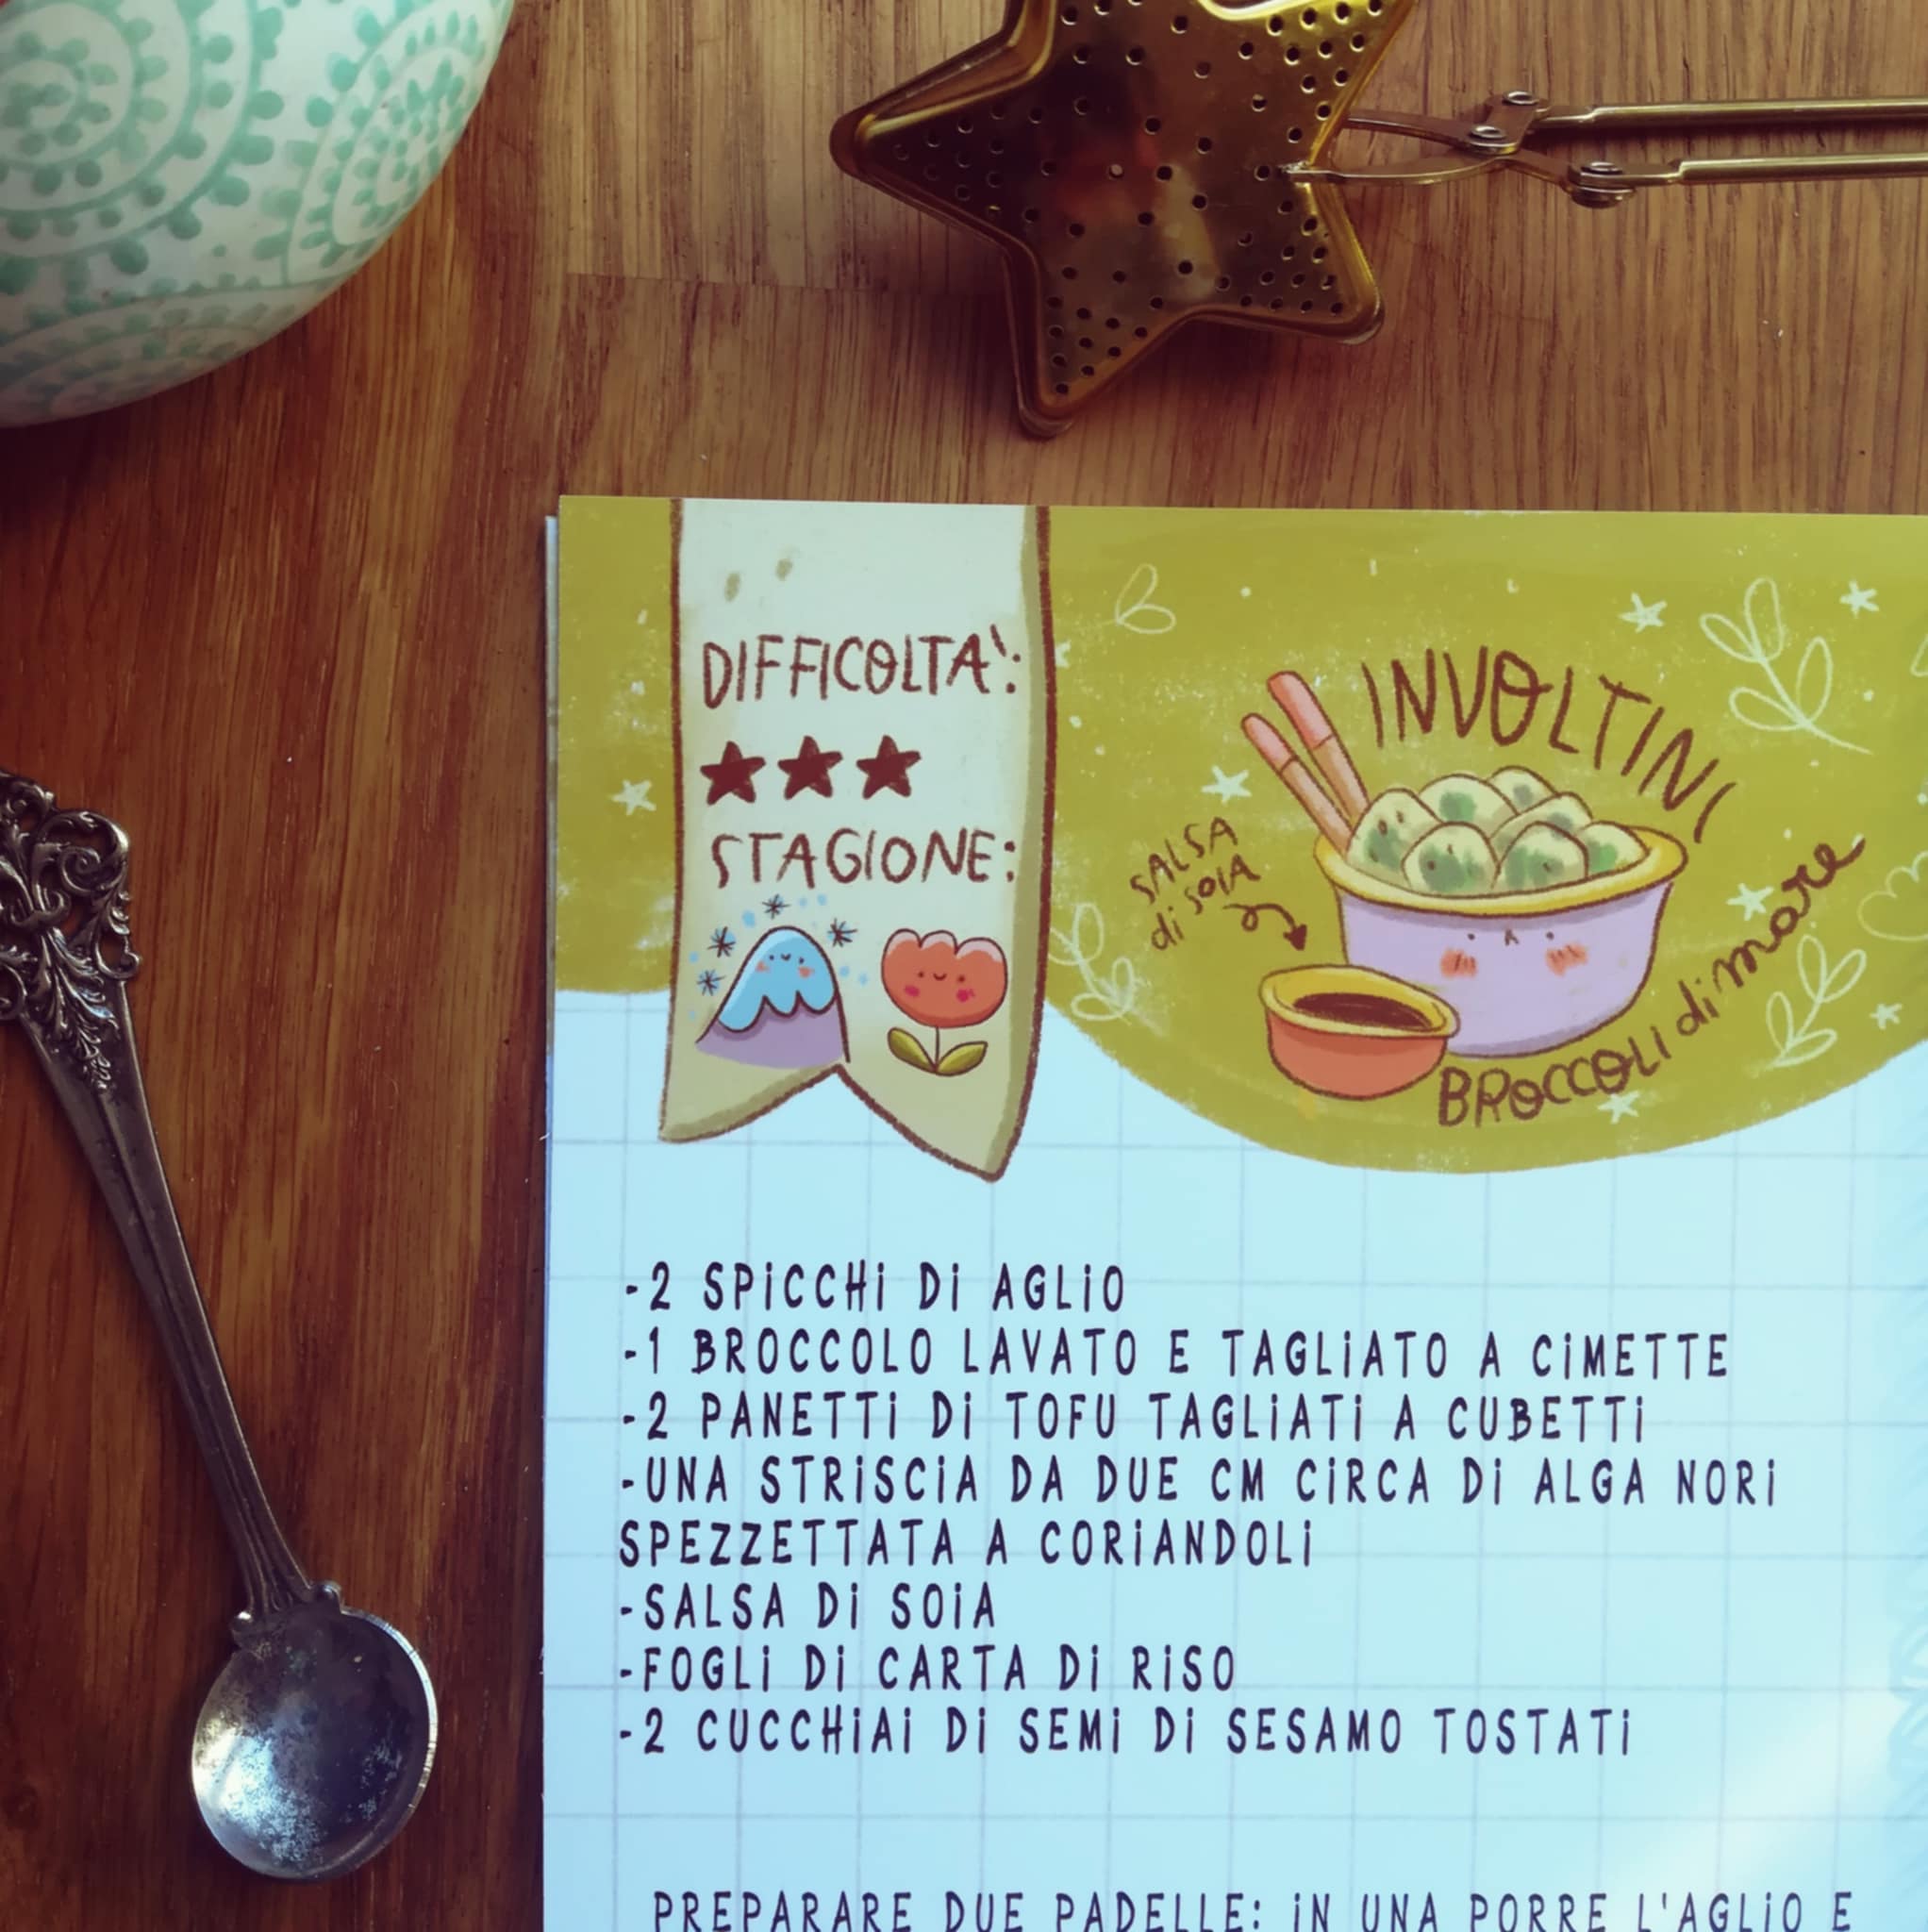 DIFFICOLTA':
STAGIONE:
INVOLTINI
SALSA
di SOIA
BROCCOLI di mare
-2 SPiCCHi Di AGLiO
-1 BROCCOLO LAVATO E TAGLiATO A CiMETTE
-2 PANETTi Di TOFU TAGLiATi A CUBETTi
-UNA STRiSCiA DA DUE CM CiRCA Di ALGA NORi
SPEZZETTATA A CORiANDOLi
-SALSA Di SOiA
-FOGLi Di CARTA Di RiSO
-2 CUCCHiAi Di SEMi Di SESAMO TOSTATi
PREPARARE DUE PADELLE: iN UNA PORRE L'AGLiO E